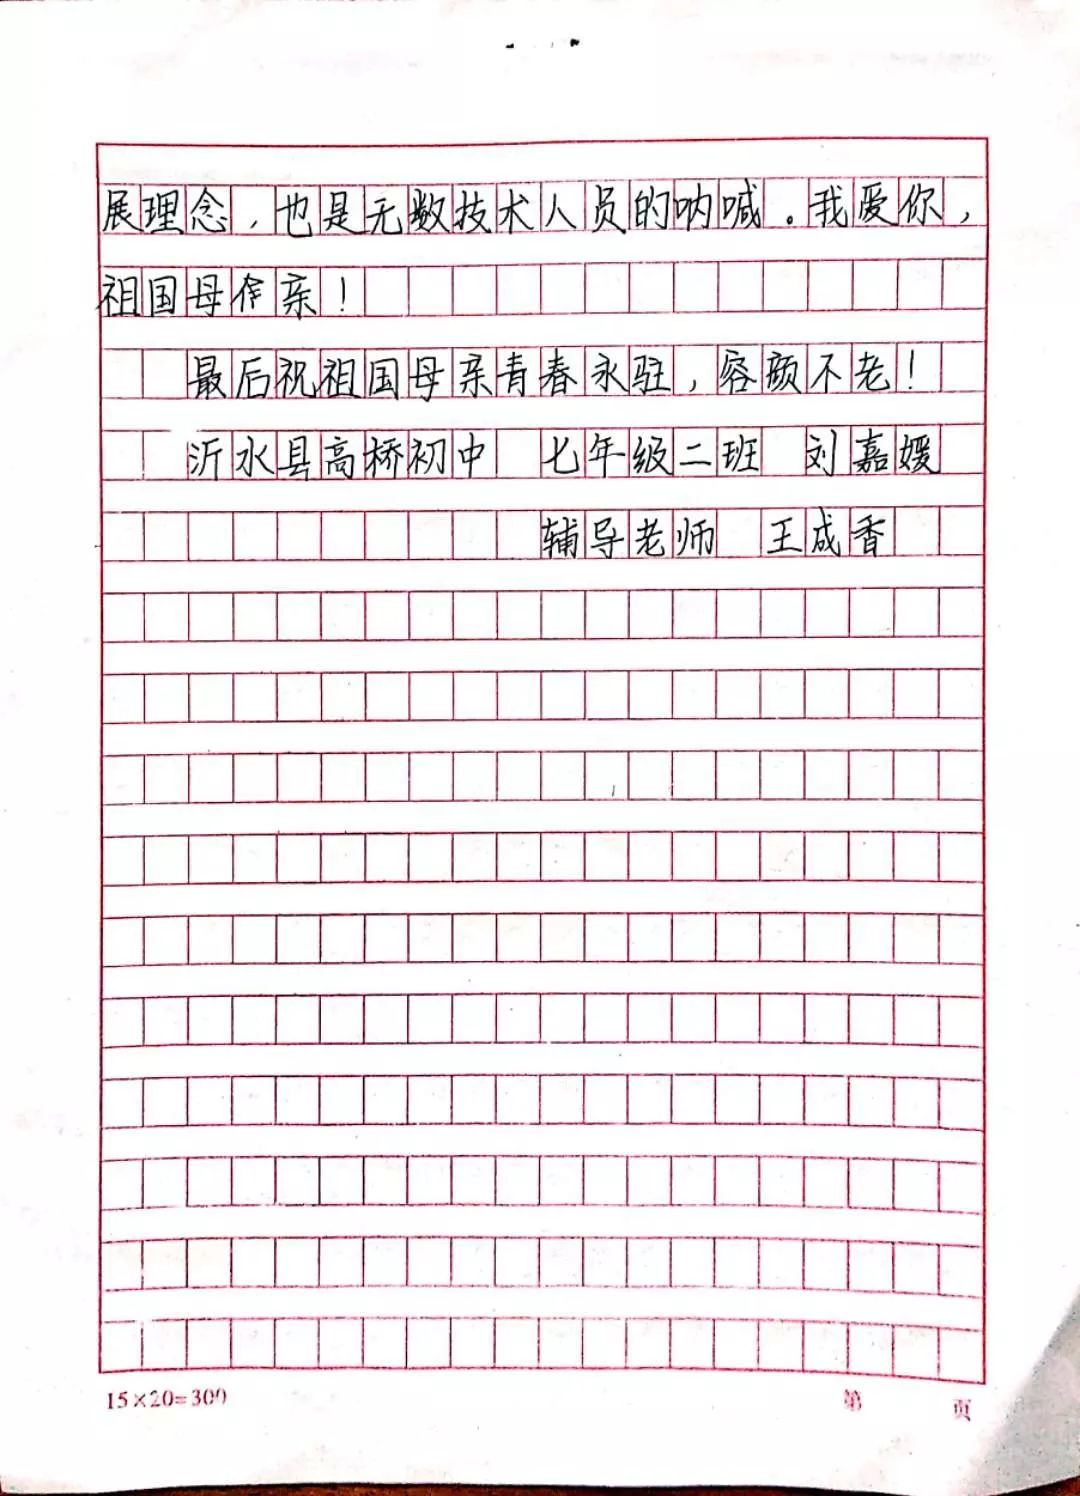 展理念，也是无数技术人员的呐喊。我爱你，
祖国母亲！
最后祝祖国母亲青春永驻，容颜不老！
沂水县高桥初中 七年级二班 刘嘉媛
辅导老师 王成香
15×20=300 第 页